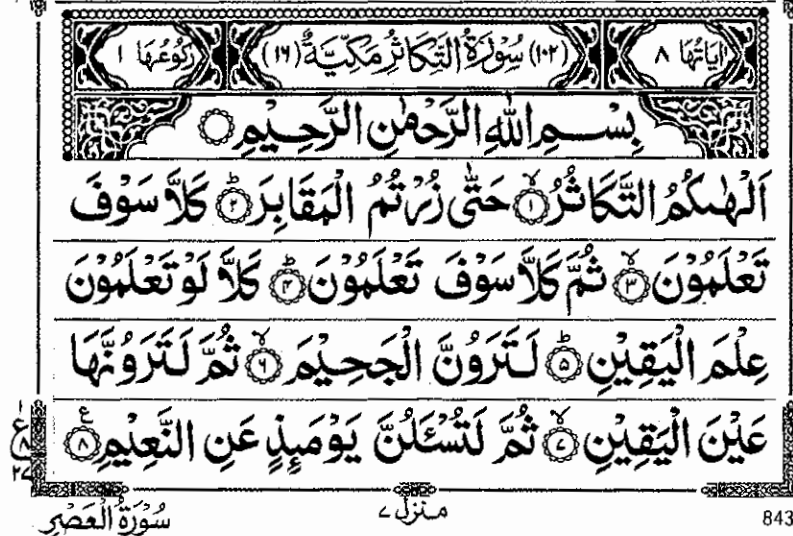 اٰيَاتُهَا ٨ (١٠٢) سُوْرَةُ التَّكَاثُرِ مَكِّيَّةٌ (١٦) رُكُوْعُهَا ١
بِسْمِ اللّٰهِ الرَّحْمٰنِ الرَّحِيْمِ ○
اَلْهٰىكُمُ التَّكَاثُرُ ۙ﴿١﴾ حَتّٰى زُرْتُمُ الْمَقَابِرَ ؕ﴿٢﴾ كَلَّا سَوْفَ
تَعْلَمُوْنَ ۙ﴿٣﴾ ثُمَّ كَلَّا سَوْفَ تَعْلَمُوْنَ ؕ﴿٤﴾ كَلَّا لَوْ تَعْلَمُوْنَ
عِلْمَ الْيَقِيْنِ ؕ﴿٥﴾ لَتَرَوُنَّ الْجَحِيْمَ ۙ﴿٦﴾ ثُمَّ لَتَرَوُنَّهَا
عَيْنَ الْيَقِيْنِ ۙ﴿٧﴾ ثُمَّ لَتُسْـَٔلُنَّ يَوْمَىِٕذٍ عَنِ النَّعِيْمِ ﴿٨﴾ ع
١
ع
٨
٢٧
843
منزل ٧
سُوْرَةُ الْعَصْرِ